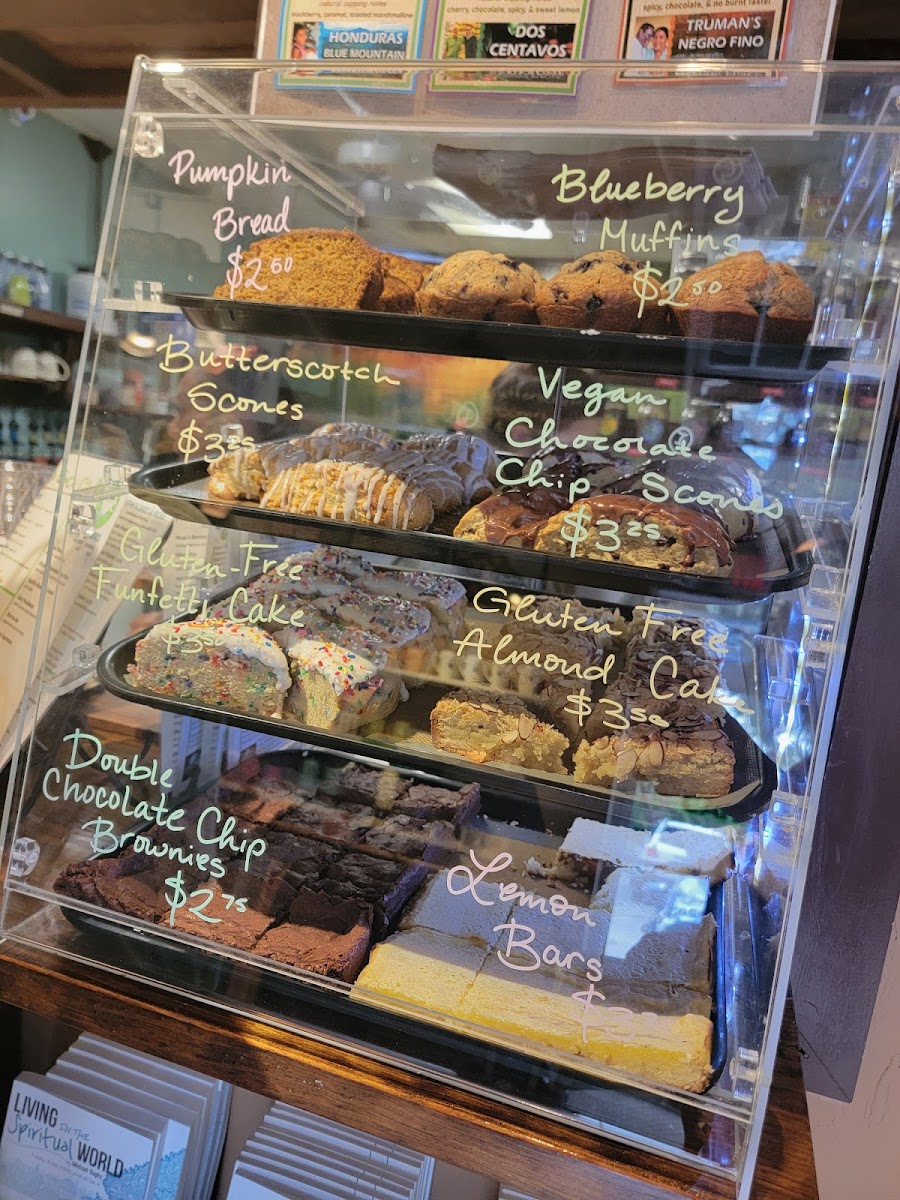 natural cupping notes
blackberry, caramel, toasted marshmallow
HONDURAS
BLUE MOUNTAIN
cherry, chocolate, spicy, & sweet lemon
DOS
CENTAVOS
spicy, chocolate, & no burnt taste!
TRUMAN'S
NEGRO FINO
Pumpkin
Bread
$2.60
Blueberry
Muffins
$2.50
Butterscotch
Scones
$3.25
Vegan
Chocolate
Chip Scones
$3.25
Gluten-Free
Funfetti Cake
$3.50
Gluten Free
Almond Cake
$3.50
Double
Chocolate Chip
Brownies
$2.75
Lemon
Bars
$
LIVING IN THE
Spiritual WORLD